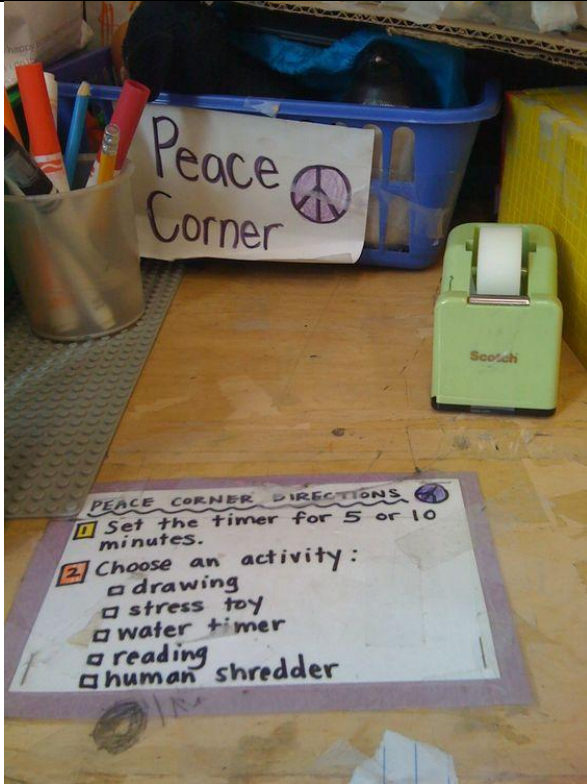 happy
Peace
Corner
Scotch
PEACE CORNER DIRECTIONS
1 Set the timer for 5 or 10
minutes.
2 Choose an activity:
drawing
stress toy
water timer
reading
human shredder